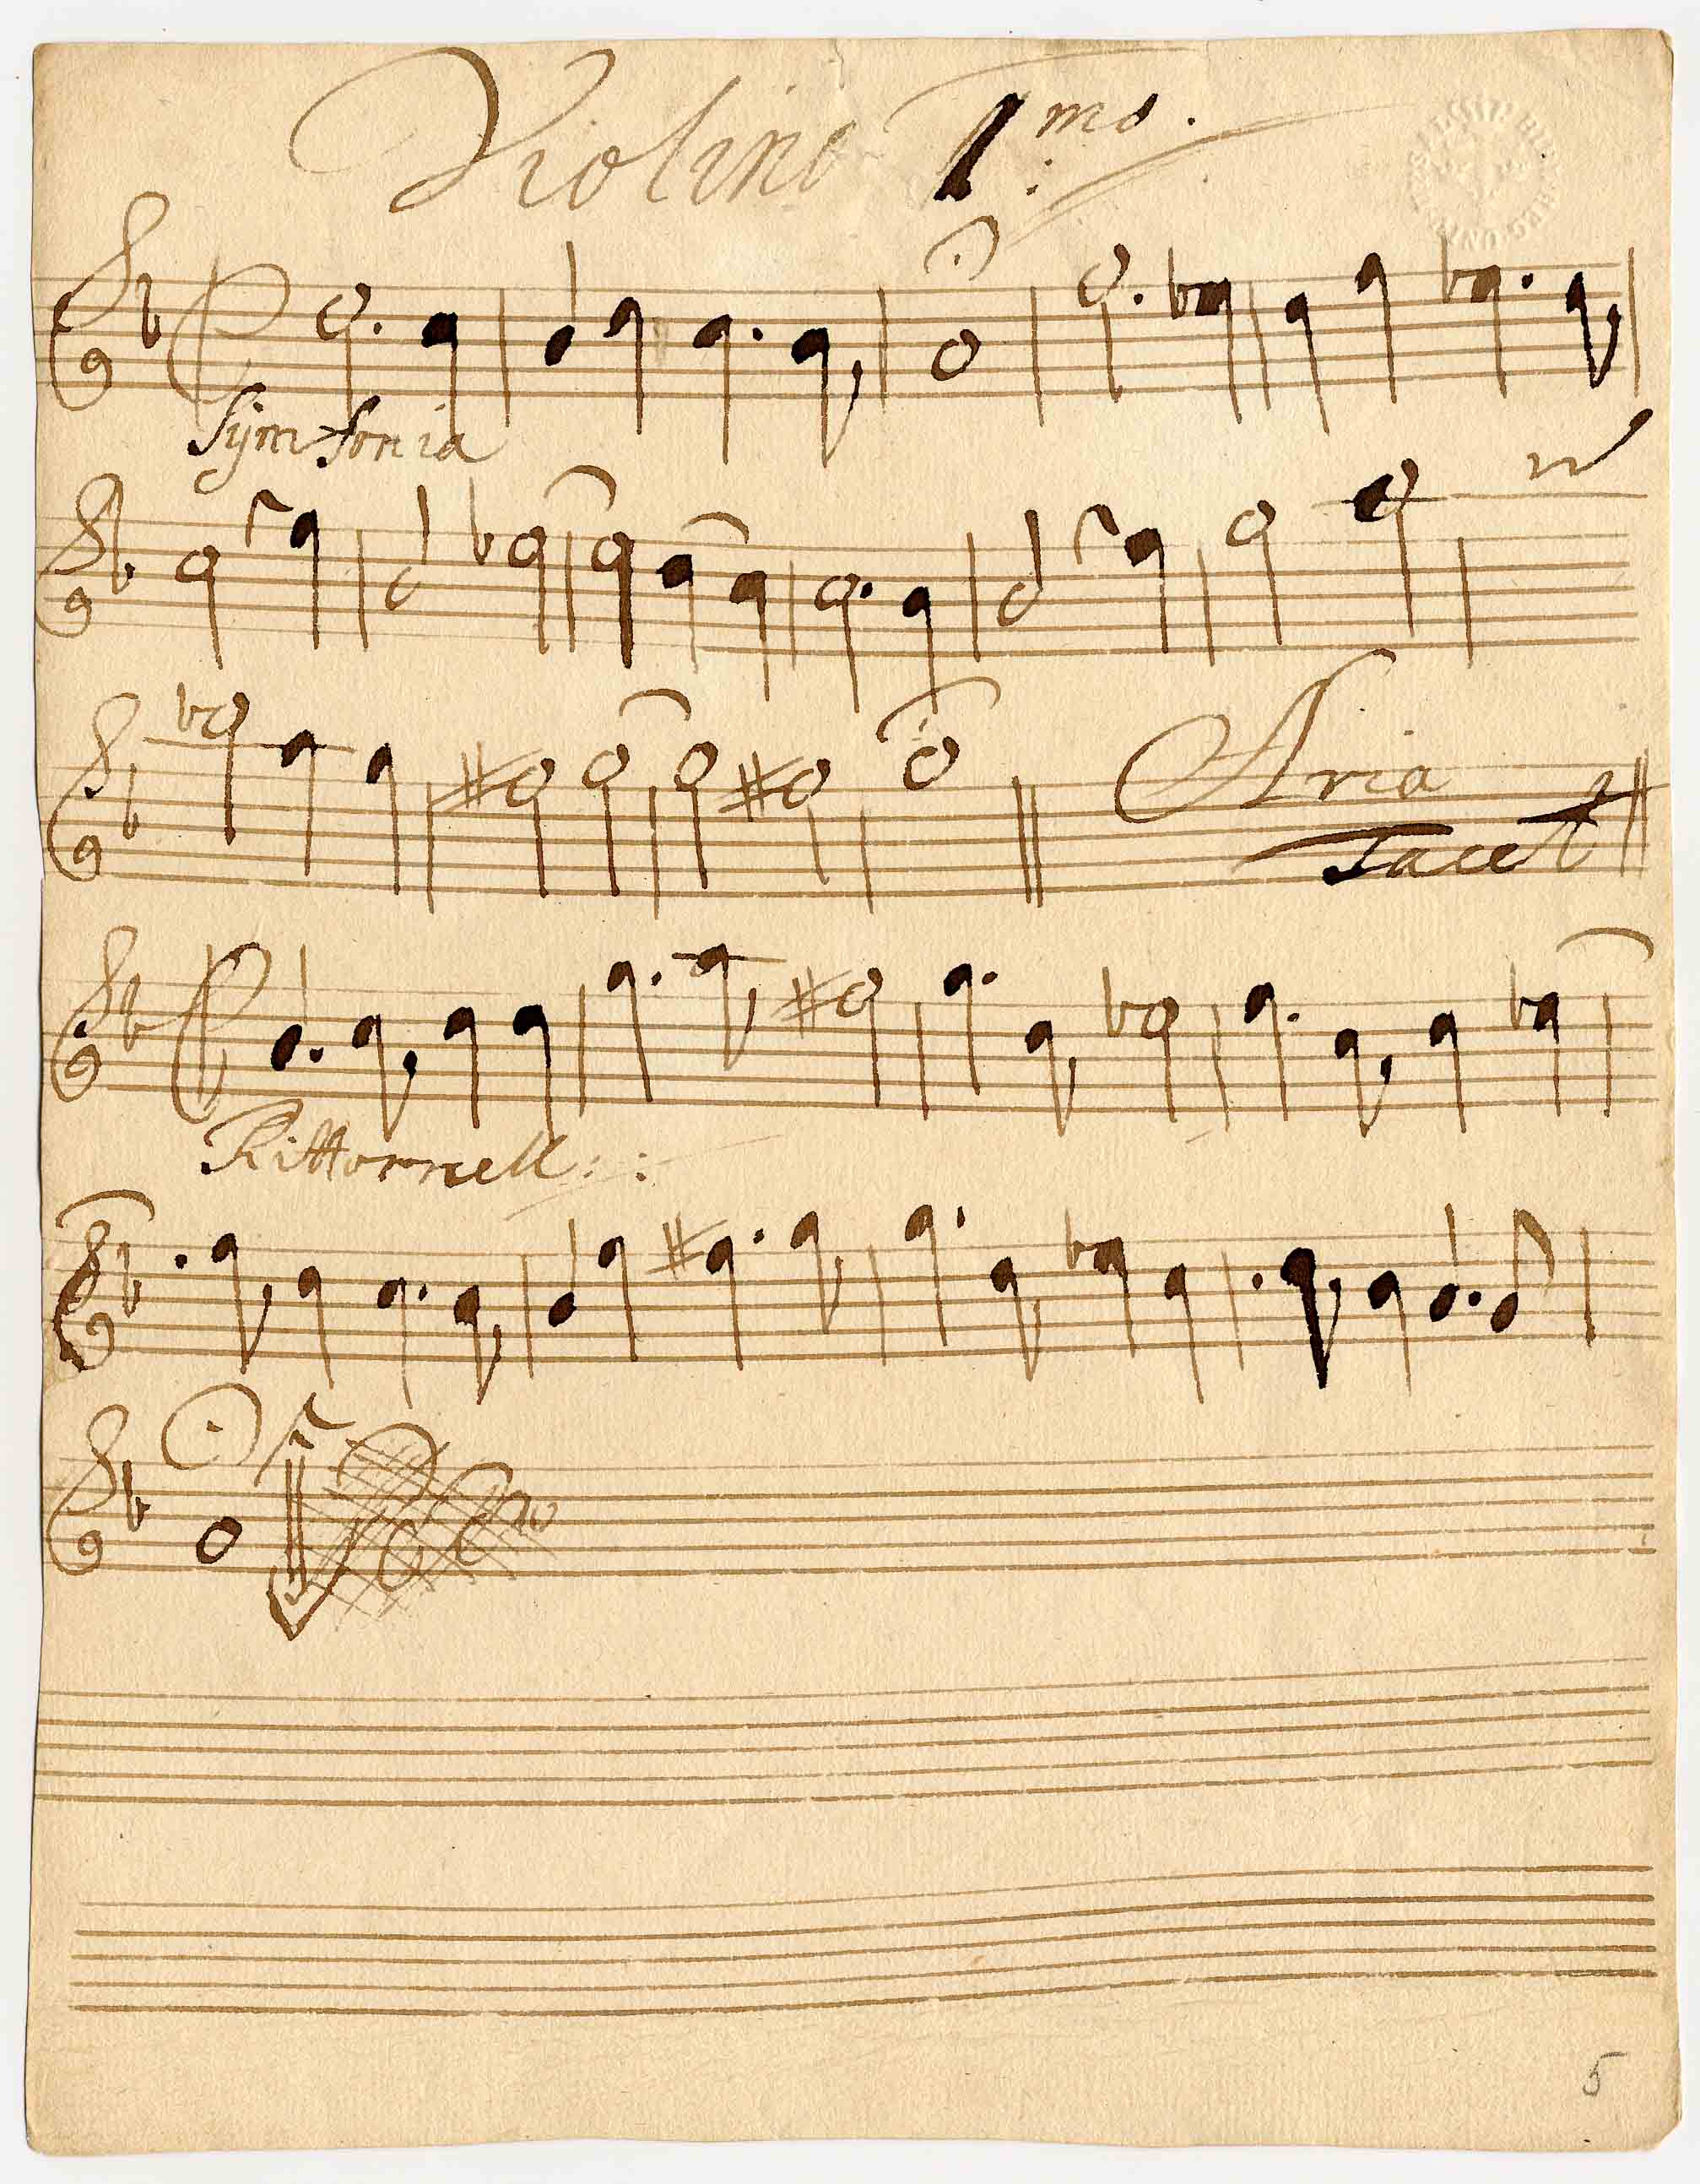 Violino 1.mo.
Symfonia
Aria
Tacet
Rittornell::
5